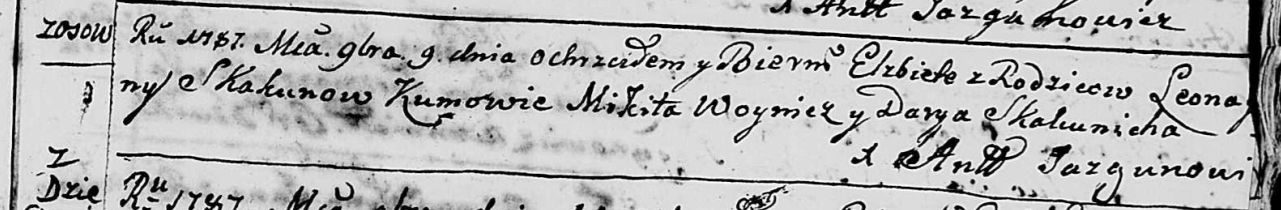 X Antt Jazgunowicz
zosow Ru 1787. Mca. 9bra. 9. dnia ochrzciłem y Bierm Elzbiete z Rodzicow Leona y
ny Skakunow Kumowie Mikita Woynicz y Darya Skakunicha
X Antt Jazgunowi
z
Dzie Ru 1787. Mca